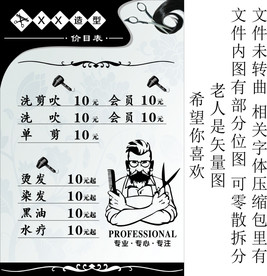 XX造型
价目表
洗剪吹 10元 会员 10元
洗吹 10元 会员 10元
单剪 10元
烫发 10元起
染发 10元起
黑油 10元起
水疗 10元起
PROFESSIONAL
专业·专心·专注
文件未转曲 相关字体压缩包里有
文件内图有部分位图 可零散拆分
老人是矢量图
希望你喜欢